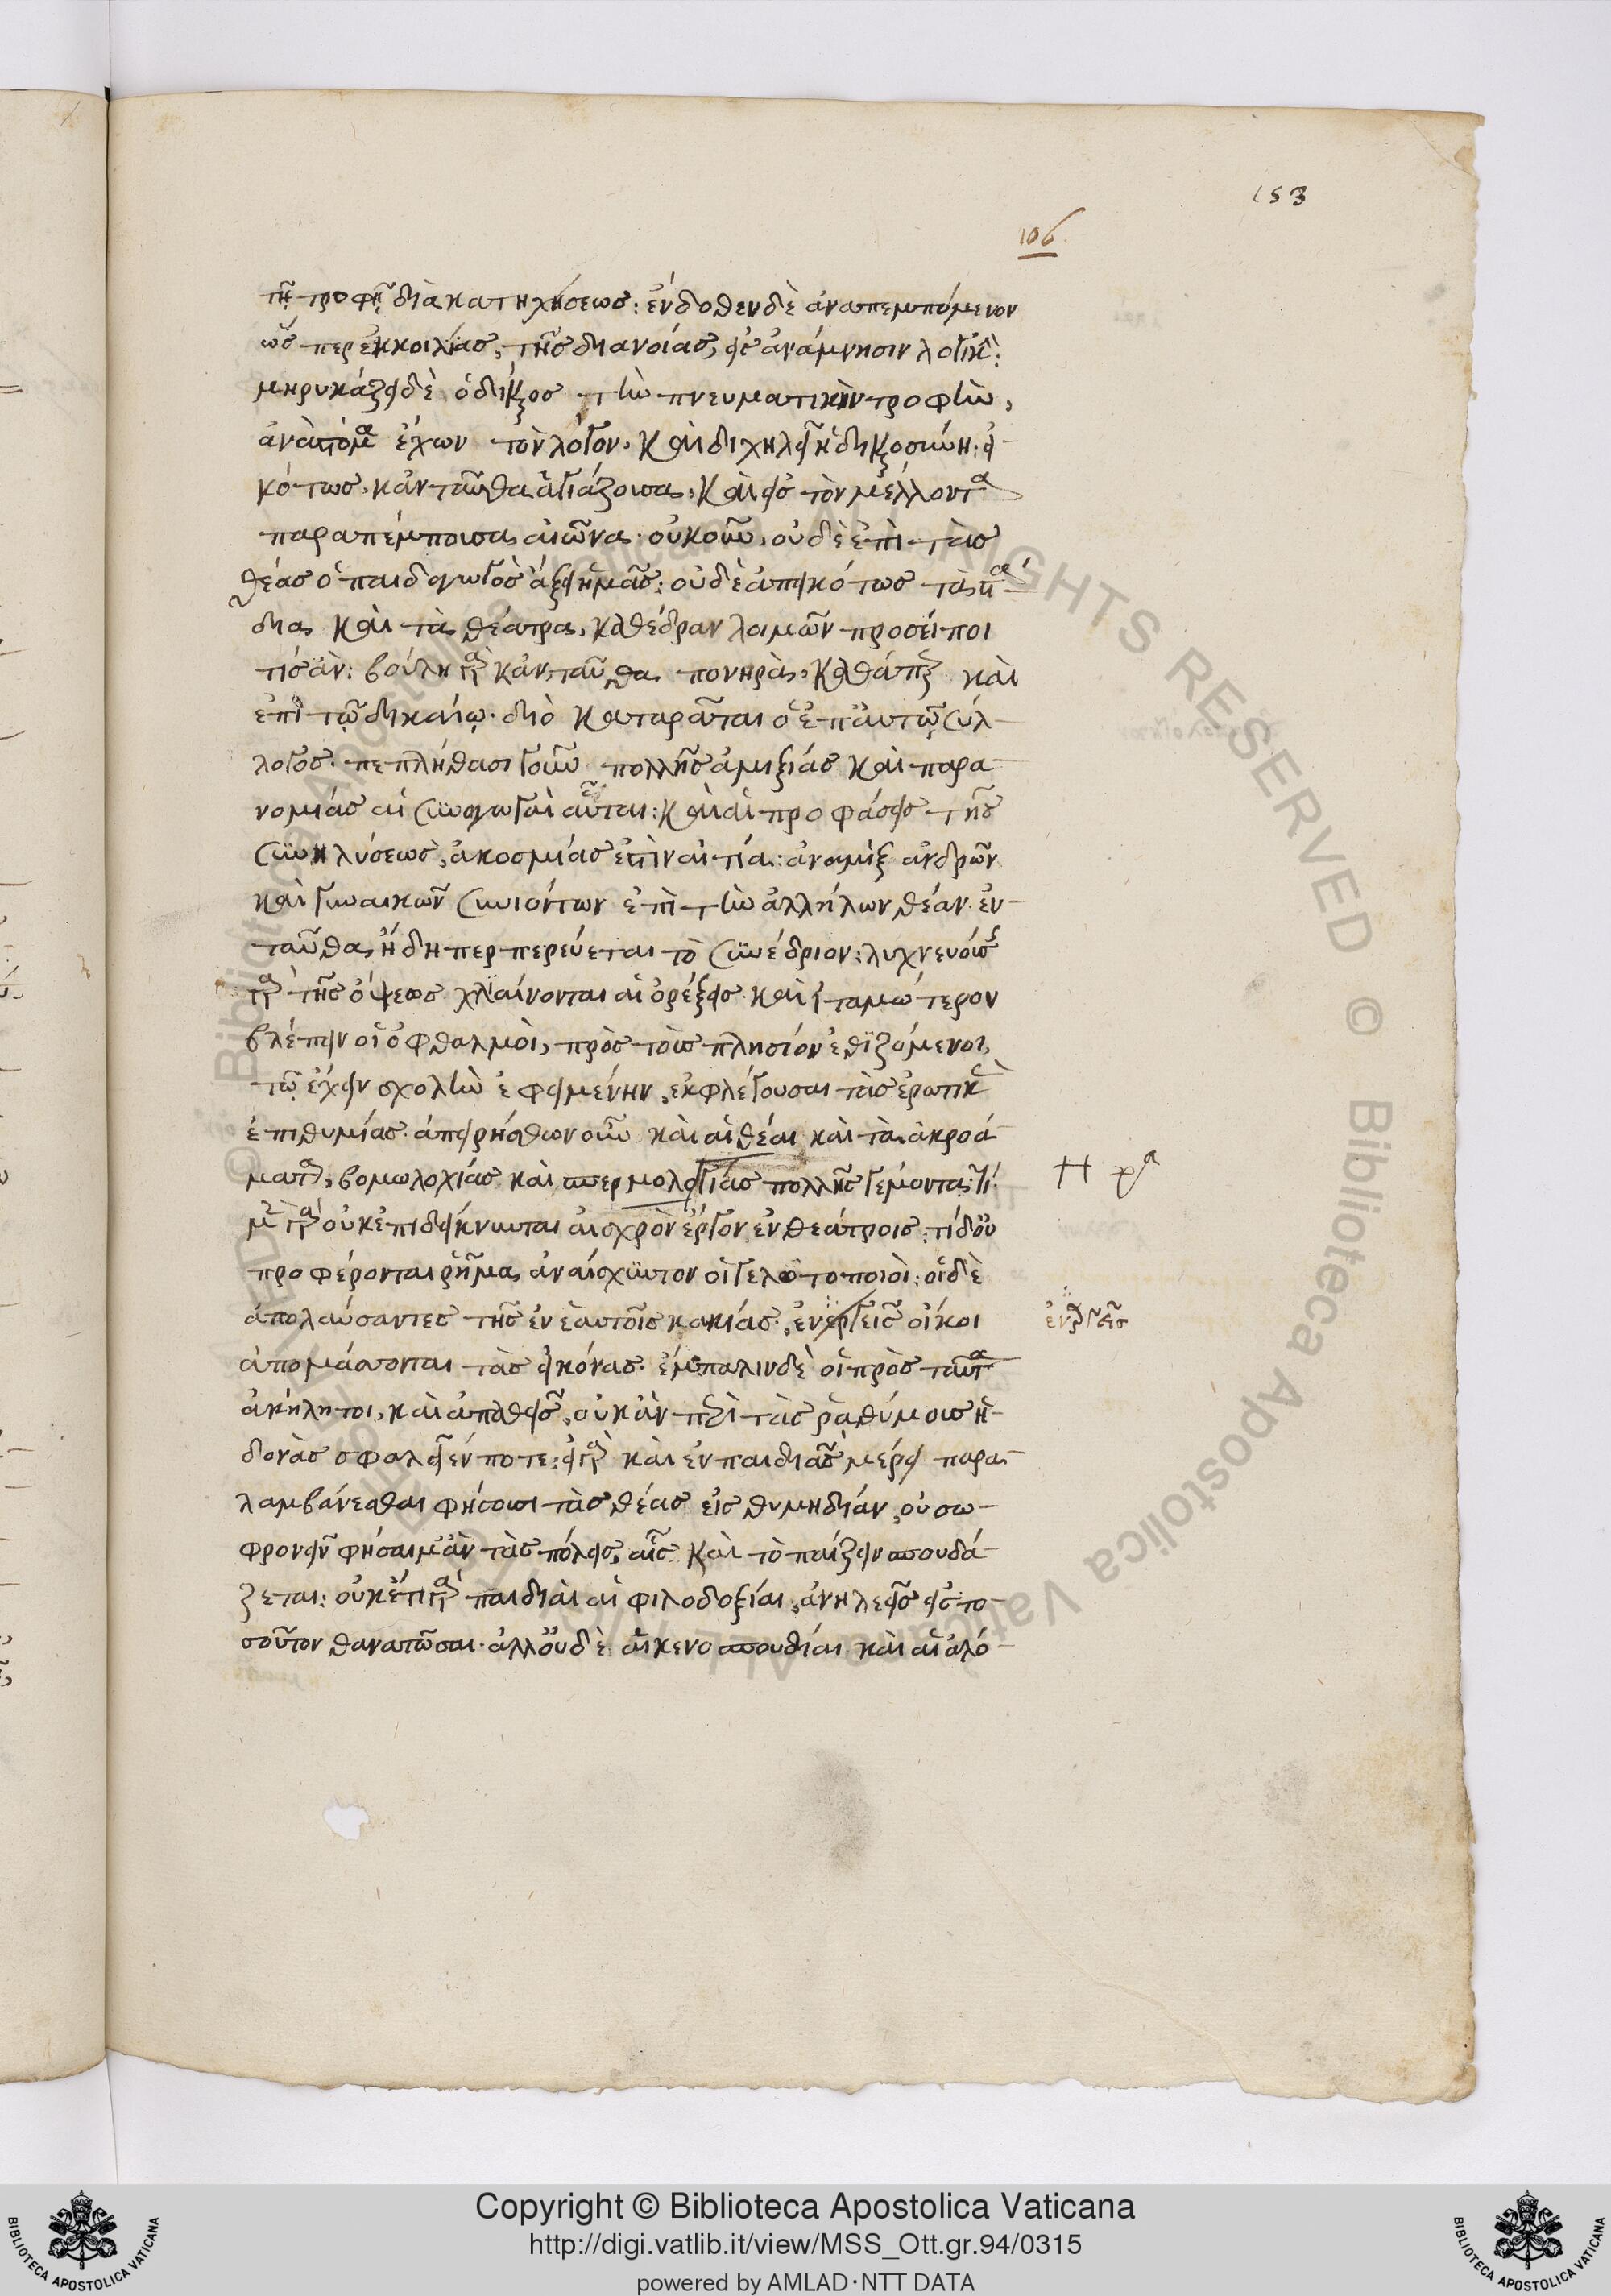 153
106.
τῇ τροφῇ διὰ κατηχήσεως: ἔνδοθεν δὲ ἀναπεμπόμενον
ὥσπερ ἐκ κοιλίας, τῆς διανοίας, εἰς ἀνάμνησιν λογικὴν:
μηρυκάζει δὲ ὁ δίκαιος τὴν πνευματικὴν τροφὴν,
ἀνὰ στόμα ἔχων τὸν λόγον. καὶ διχηλεῖ ἡ δικαιοσύνη: εἰ-
κότως. κἀνταῦθα ἁγιάζουσα. καὶ εἰς τὸν μέλλοντα
παραπέμπουσα αἰῶνα. οὐκοῦν, οὐδὲ ἐπὶ τὰς
θέας ὁ παιδαγωγὸς ἄξει ἡμᾶς: οὐδὲ ἀπεικότως τὰ στά-
δια καὶ τὰ θέατρα, καθέδραν λοιμῶν προσείποι
τίς ἄν: βουλὴ γὰρ κἀνταῦθα πονηρὰ. καθάπερ καὶ
ἐπὶ τῷ δικαίῳ. διὸ καταρᾶται ὁ ἐπ' αὐτῷ σύλ-
λογος. πεπλήθασι γοῦν πολλῆς ἀμιξίας καὶ παρα-
νομίας αἱ συναγωγαὶ αὗται: καὶ αἱ προφάσεις τῆς
συνηλύσεως, ἀκοσμίας ἐστὶν αἰτία: ἀναμὶξ ἀνδρῶν
καὶ γυναικῶν συνιόντων ἐπὶ τὴν ἀλλήλων θέαν. ἐν-
ταῦθα ἤδη περπερεύεται τὸ συνέδριον: λιχνευούσης
γὰρ τῆς ὄψεως χλιαίνονται αἱ ὀρέξεις. καὶ ἰταμώτερον
βλέπειν οἱ ὀφθαλμοὶ, πρὸς τοὺς πλησίον ἐθιζόμενοι,
τῷ ἔχειν σχολὴν ἐφειμένην, ἐκφλέγουσαι τὰς ἐρωτικὰς
ἐπιθυμίας. ἀπειρήσθων οὖν καὶ αἱ θέαι καὶ τὰ ἀκροά-
ματα, βομωλοχίας καὶ σπερμολογίας πολλῆς γέμοντα: τί
μὲν γὰρ οὐκ ἐπιδείκνυται αἰσχρὸν ἔργον ἐν θεάτροις: τί δ' οὐ
προφέρονται ῥῆμα ἀναίσχυντον οἱ γελωτοποιοὶ: οἱ δὲ
ἀπολαύσαντες τῆς ἐν ἑαυτοῖς κακίας. ἐνεργεῖς οἴκοι
ἐναργεῖς
ἀπομάσσονται τὰς εἰκόνας. ἔμπαλιν δὲ οἱ πρὸς ταῦτα
ἀκήλητοι, καὶ ἀπαθεῖς, οὐκ ἂν περὶ τὰς ῥαθύμους ἡ-
δονὰς σφαλεῖέν ποτε: εἰ γὰρ καὶ ἐν παιδιᾶς μέρει παρα-
λαμβάνεσθαι φήσουσι τὰς θέας εἰς θυμηδίαν, οὐ σω-
φρονεῖν φήσαιμ' ἂν τὰς πόλεις, αἷς καὶ τὸ παίζειν σπουδά-
ζεται: οὐκέτι γὰρ παιδιαὶ αἱ φιλοδοξίαι, ἀνηλεεῖς εἰς το-
σοῦτον θανατῶσαι. ἀλλ' οὐδὲ αἱ κενοσπουδίαι καὶ αἱ ἀλό-